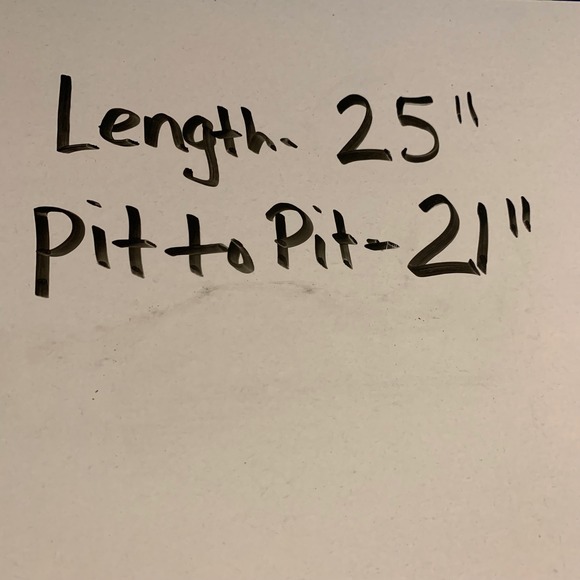 Length- 25"
Pit to Pit- 21"